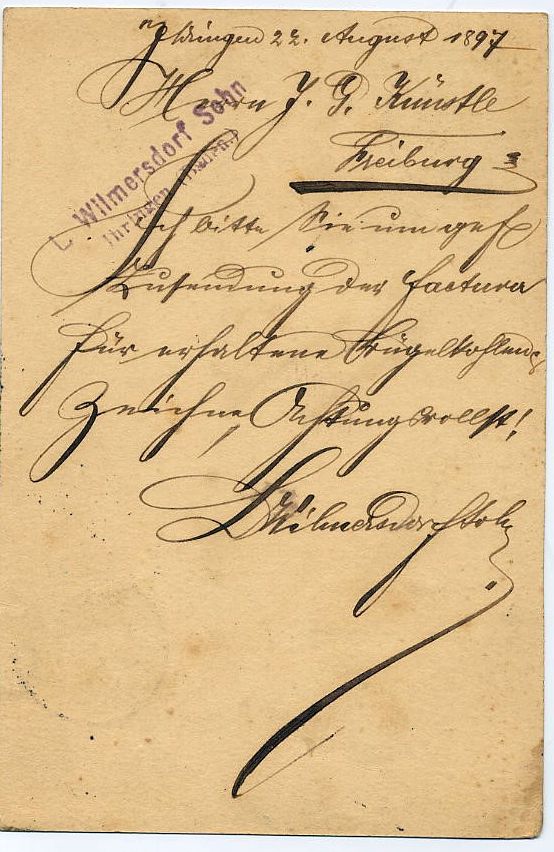 Ihringen 22. August 1897
Herrn J. G. Künstle
Freiburg
L. Wilmersdorf Sohn
Ihringen (Baden.)
Ich bitte Sie um gef
Zusendung der Factura
für erhaltene Bügelkohlen
Zeichne, Achtungsvollst!
L Wilmersdorf Sohn